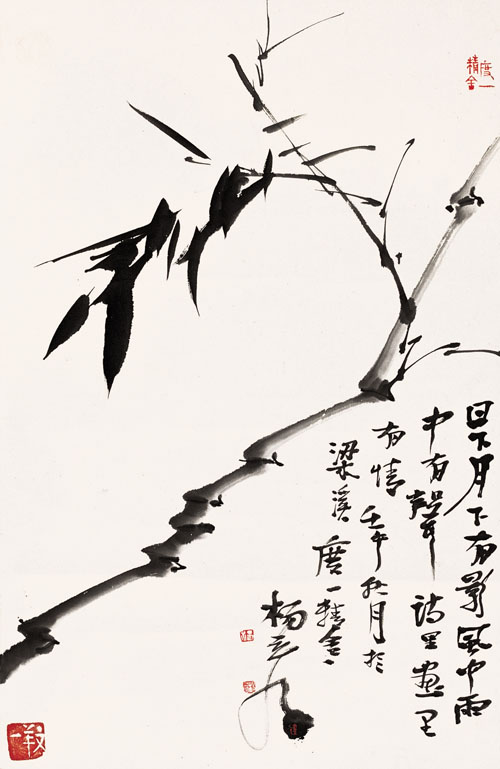 度一
精舍
日下月下有影風中雨
中有聲诗里畫里
有情壬午秋月於
梁溪度一精舍
杨